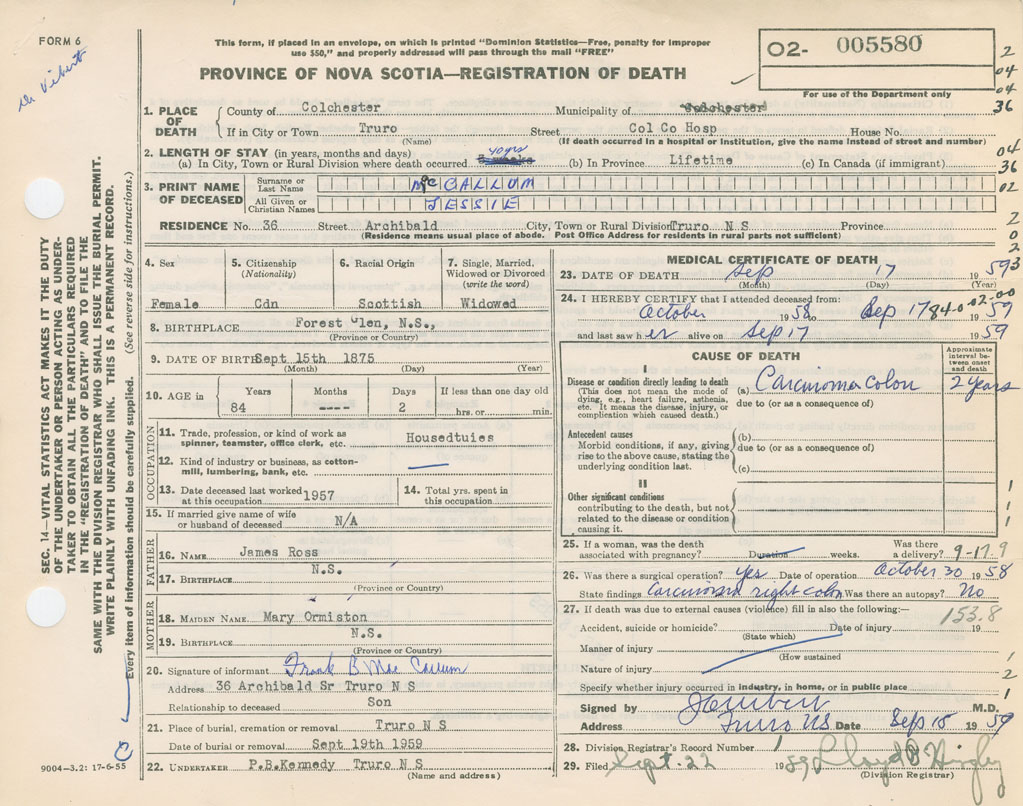 FORM 6
This form, if placed in an envelope, on which is printed "Dominion Statistics—Free, penalty for improper
use $50," and properly addressed will pass through the mail "FREE"
PROVINCE OF NOVA SCOTIA—REGISTRATION OF DEATH
02- 005580
For use of the Department only
2
04
04
36
04
36
02
2
0
2
3
1. PLACE OF DEATH
County of Colchester Municipality of Colchester
If in City or Town Truro Street Col Co Hosp House No.
(Name) (If death occurred in a hospital or institution, give the name instead of street and number)
2. LENGTH OF STAY (in years, months and days)
(a) In City, Town or Rural Division where death occurred 40yrs (b) In Province Lifetime (c) In Canada (if immigrant)
3. PRINT NAME OF DECEASED
Surname or Last Name McCALLUM
All Given or Christian Names JESSIE
RESIDENCE No. 36 Street Archibald City, Town or Rural Division Truro N S Province
(Residence means usual place of abode. Post Office Address for residents in rural parts not sufficient)
SEC. 14—VITAL STATISTICS ACT MAKES IT THE DUTY
OF THE UNDERTAKER OR PERSON ACTING AS UNDER-
TAKER TO OBTAIN ALL THE PARTICULARS REQUIRED
IN THE "REGISTRATION OF DEATH" AND TO FILE THE
SAME WITH THE DIVISION REGISTRAR WHO SHALL ISSUE THE BURIAL PERMIT.
WRITE PLAINLY WITH UNFADING INK. THIS IS A PERMANENT RECORD.
Every item of information should be carefully supplied. (See reverse side for instructions.)
4. Sex
Female
5. Citizenship
(Nationality)
Cdn
6. Racial Origin
Scottish
7. Single, Married,
Widowed or Divorced
(write the word)
Widowed
8. BIRTHPLACE Forest Glen, N.S.,
(Province or Country)
9. DATE OF BIRTH Sept 15th 1875
(Month) (Day) (Year)
10. AGE in
Years Months Days If less than one day old
84 ---- 2 hrs. or min.
OCCUPATION
11. Trade, profession, or kind of work as
spinner, teamster, office clerk, etc. Housedtuies
12. Kind of industry or business, as cotton-
mill, lumbering, bank, etc.
13. Date deceased last worked
at this occupation 1957
14. Total yrs. spent in
this occupation
15. If married give name of wife
or husband of deceased N/A
FATHER
16. NAME James Ross
17. BIRTHPLACE N.S.
(Province or Country)
MOTHER
18. MAIDEN NAME Mary Ormiston
19. BIRTHPLACE N.S.
(Province or Country)
20. Signature of informant Frank B Mac Callum
Address 36 Archibald Sr Truro N S
Relationship to deceased Son
21. Place of burial, cremation or removal Truro N S
Date of burial or removal Sept 19th 1959
22. UNDERTAKER P.B.Kennedy Truro N S
(Name and address)
9004—3.2: 17-6-55
MEDICAL CERTIFICATE OF DEATH
23. DATE OF DEATH Sep 17 1959
(Month) (Day) (Year)
24. I HEREBY CERTIFY that I attended deceased from:
84-0 02-00
October 1958 to Sep 17 1959
and last saw her alive on Sep 17 1959
CAUSE OF DEATH
Approximate
interval be-
tween onset
and death
I
Disease or condition directly leading to death
(This does not mean the mode of
dying, e.g., heart failure, asthenia,
etc. It means the disease, injury, or
complication which caused death.)
(a) Carcinoma Colon 2 Years
due to (or as a consequence of)
Antecedent causes
Morbid conditions, if any, giving
rise to the above cause, stating the
underlying condition last.
(b)
due to (or as a consequence of)
(c)
II
Other significant conditions
contributing to the death, but not
related to the disease or condition
causing it.
1
1
1
25. If a woman, was the death
associated with pregnancy? Duration weeks. Was there
a delivery? 9-17.9
26. Was there a surgical operation? Yes Date of operation October 30 1958
State findings Carcinoma right colon Was there an autopsy? No
27. If death was due to external causes (violence) fill in also the following:—
153.8
Accident, suicide or homicide? Date of injury 19
(State which)
Manner of injury
(How sustained
1
Nature of injury
2
Specify whether injury occurred in industry, in home, or in public place
1
Signed by M.D.
Address Truro N.S. Date Sep 18 1959
28. Division Registrar's Record Number 1
29. Filed Sept. 22 1959 Lloyd
(Division Registrar)